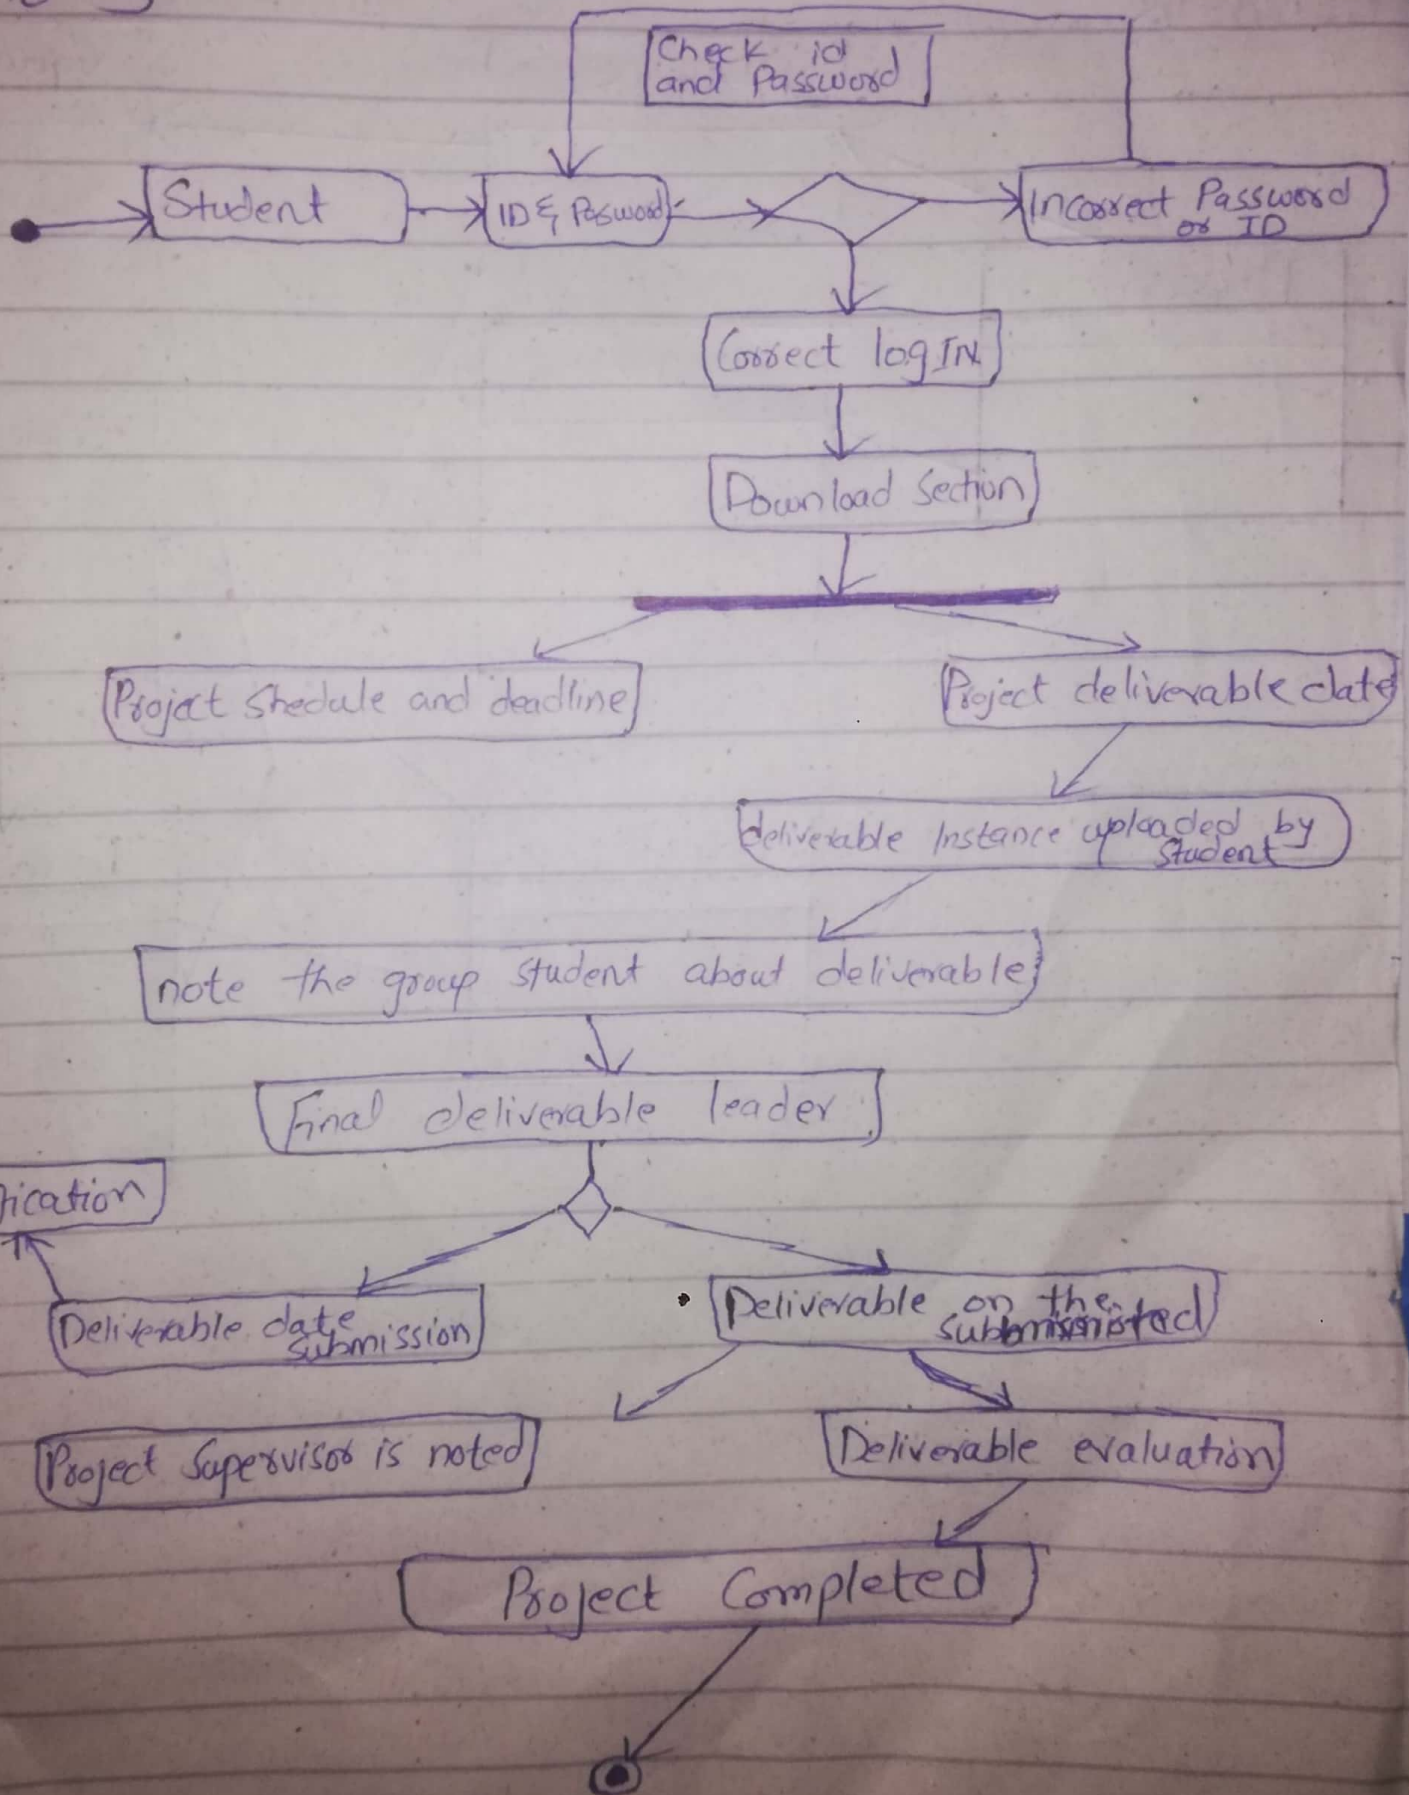 Check id
and Password
Student
ID & Password
Incorrect Password
or ID
Correct logIN
Download Section
Project Shedule and deadline
Project deliverable date
deliverable Instance uploaded by
Student
note the group student about deliverable
Final deliverable leader
fication
Deliverable date
submission
Deliverable on the
Project Supervisor is noted
Deliverable evaluation
Project Completed